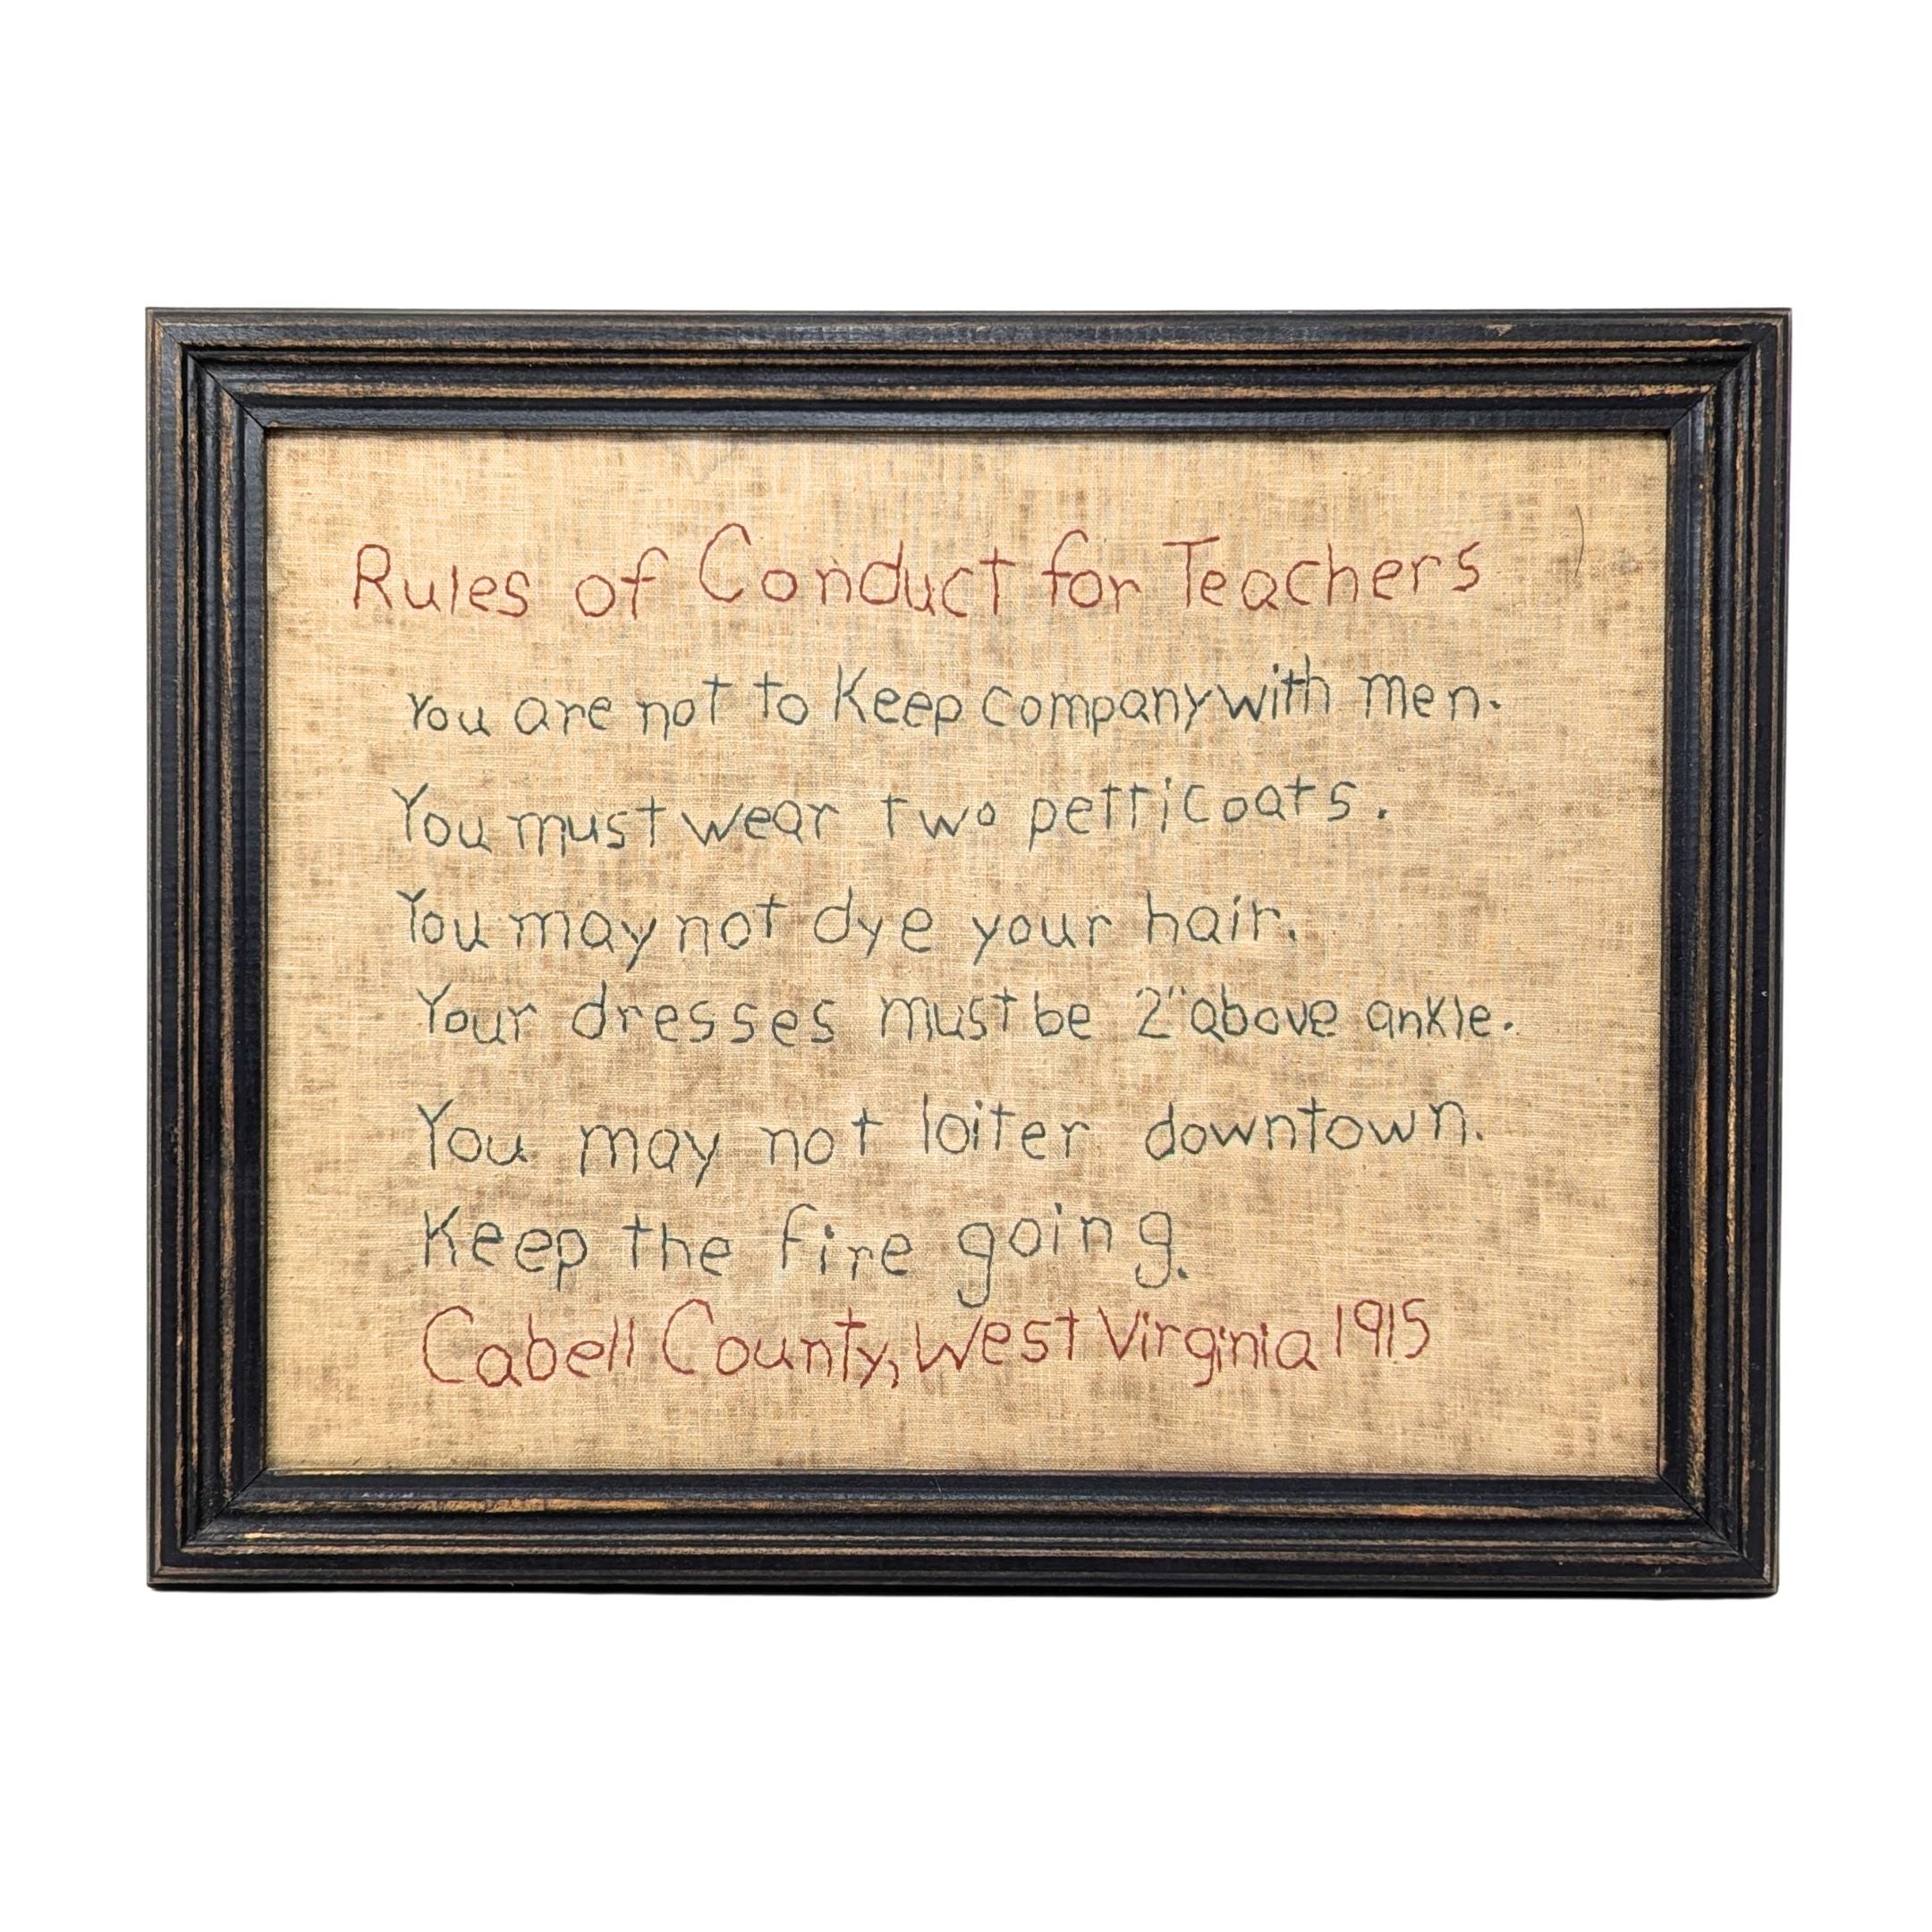 Rules of Conduct for Teachers
You are not to Keep company with men.
You must wear two petticoats.
You may not dye your hair.
Your dresses must be 2" above ankle.
You may not loiter downtown.
Keep the fire going.
Cabell County, West Virginia 1915